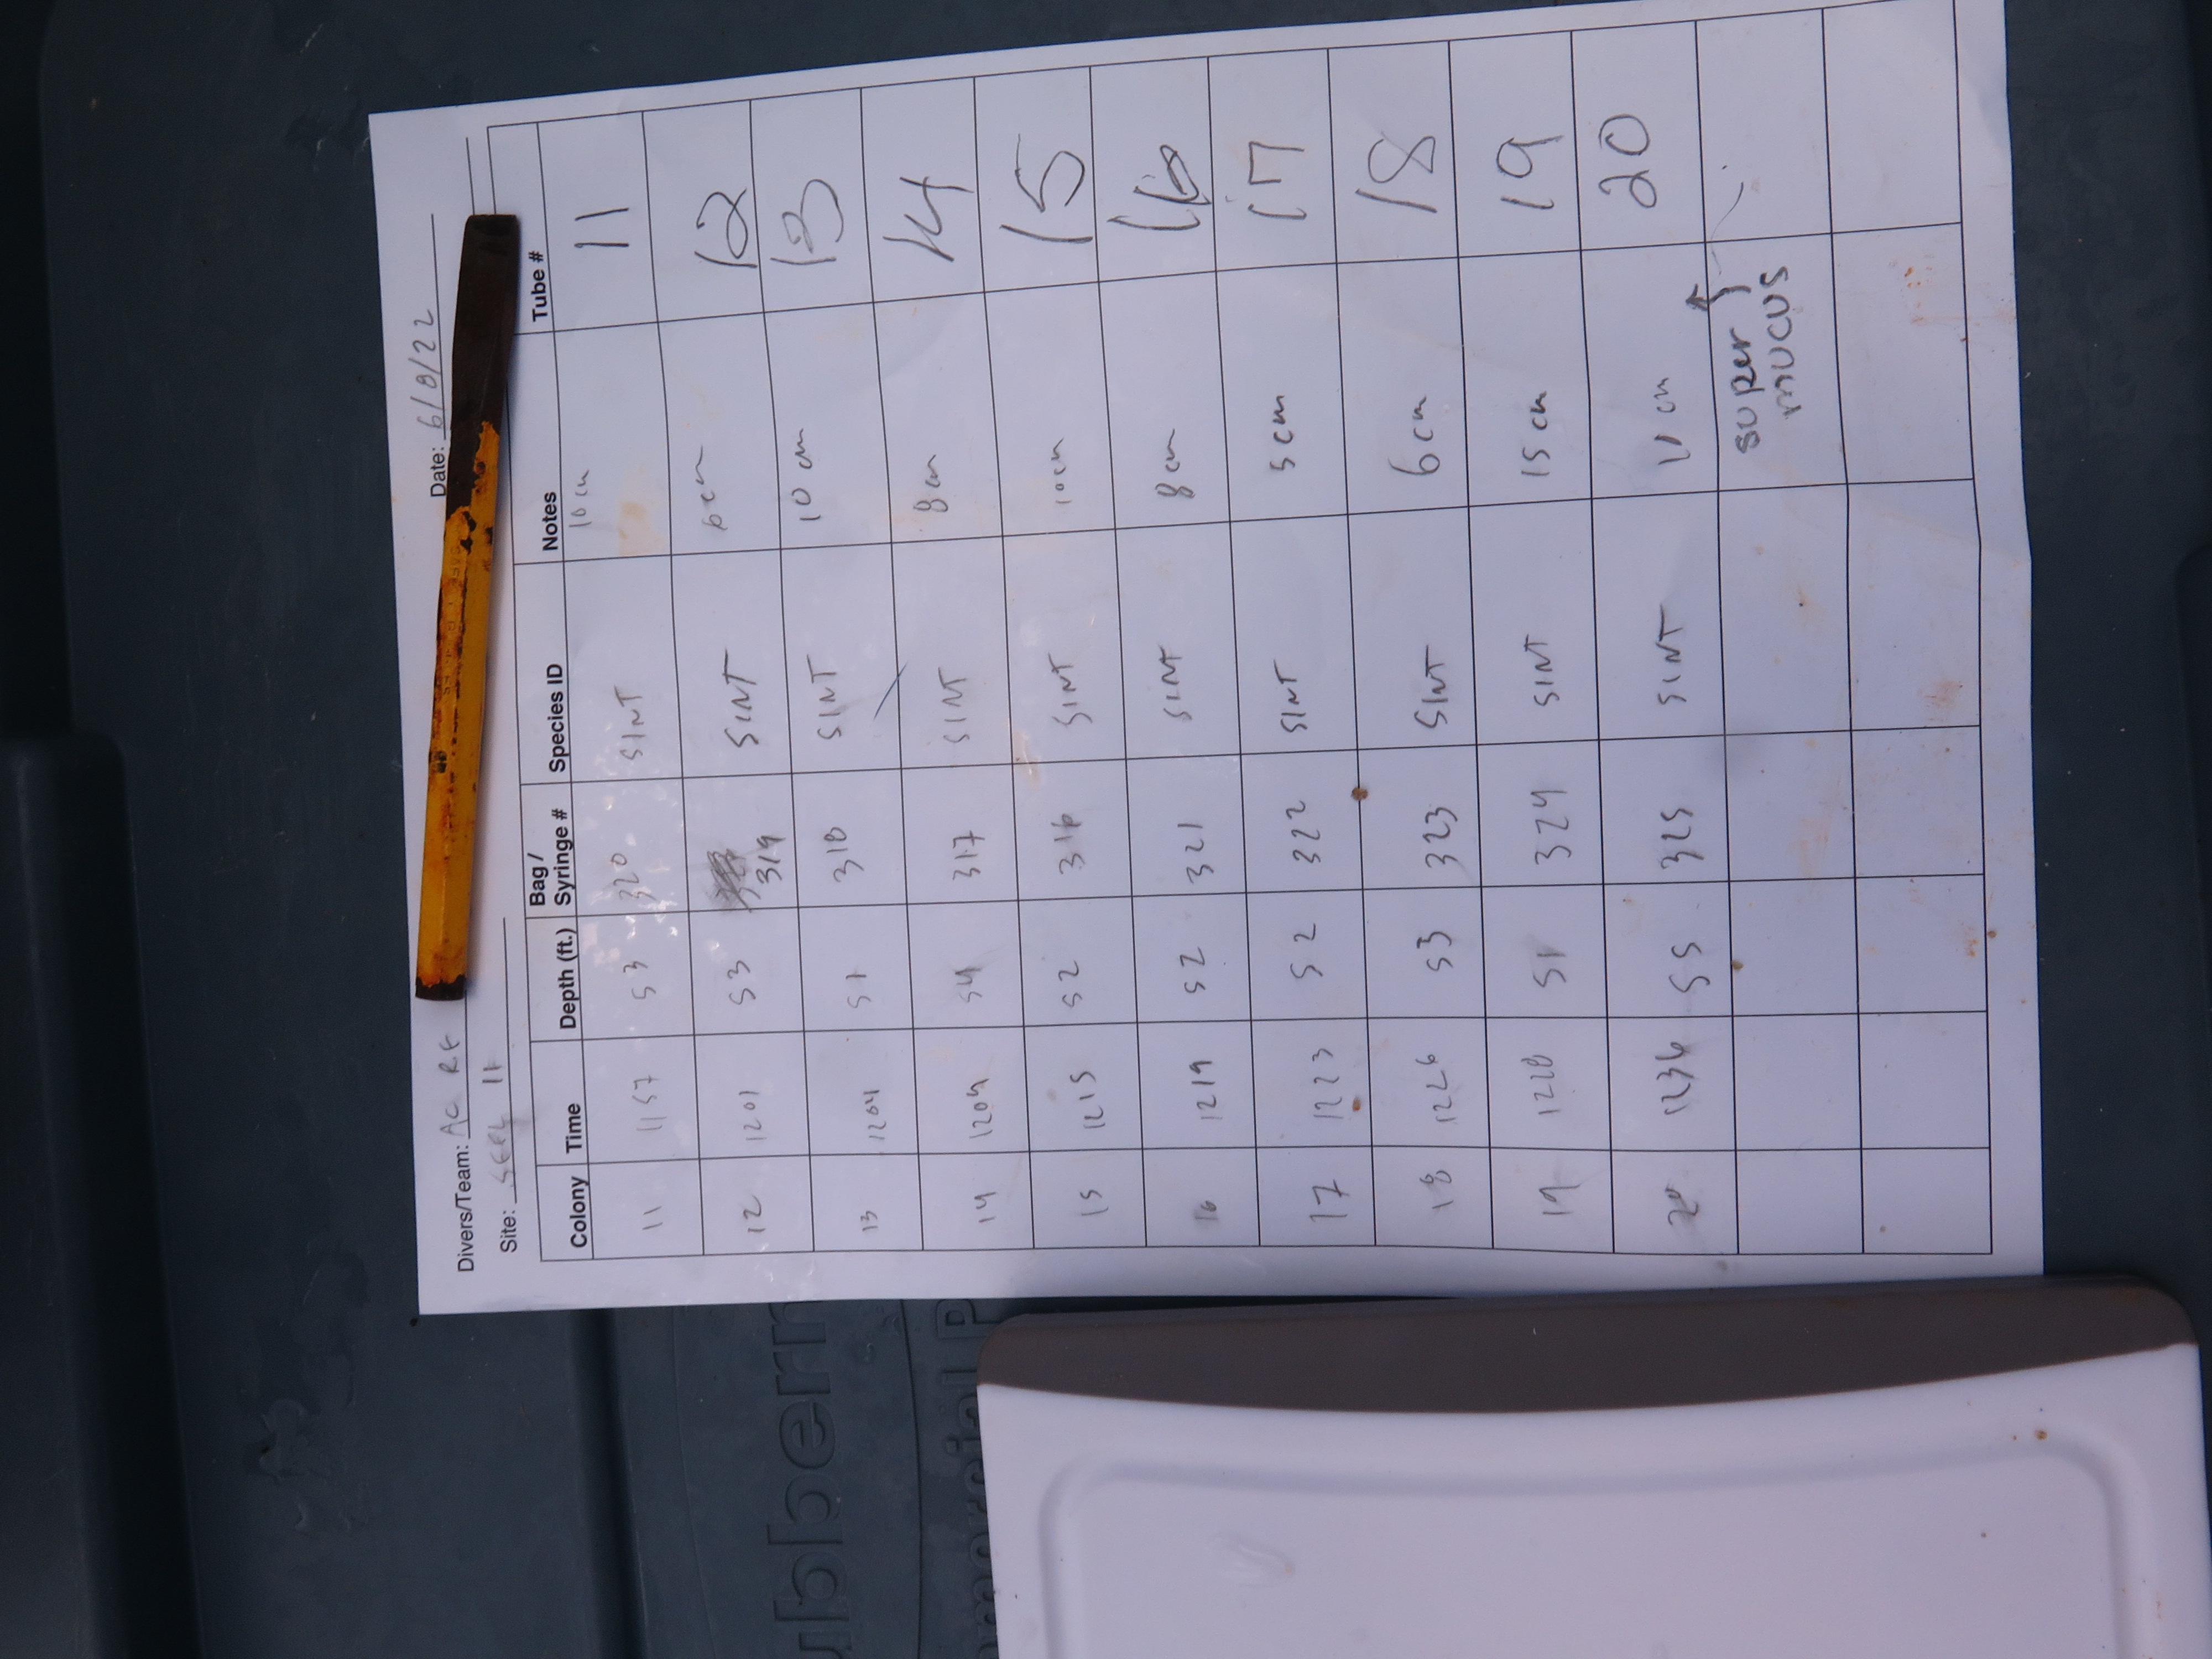 Divers/Team: AC RF
Date: 6/8/22
Site: 11
Colony Time Depth (ft.) Bag / Syringe # Species ID Notes Tube #
11 1157 53 320 SINT 10 cm 11
12 1201 53 319 SINT 6cm 12
13 1204 51 318 SINT 10 cm 13
14 1209 54 317 SINT 8cm 14
15 1215 52 316 SINT 10cm 15
16 1219 52 321 SINT 8cm 16
17 1223 52 322 SINT 5cm 17
18 1226 53 323 SINT 6cm 18
19 1228 51 324 SINT 15 cm 19
20 1236 55 325 SINT 11 cm 20
super ↑
mucus
ubberm
mmercial P